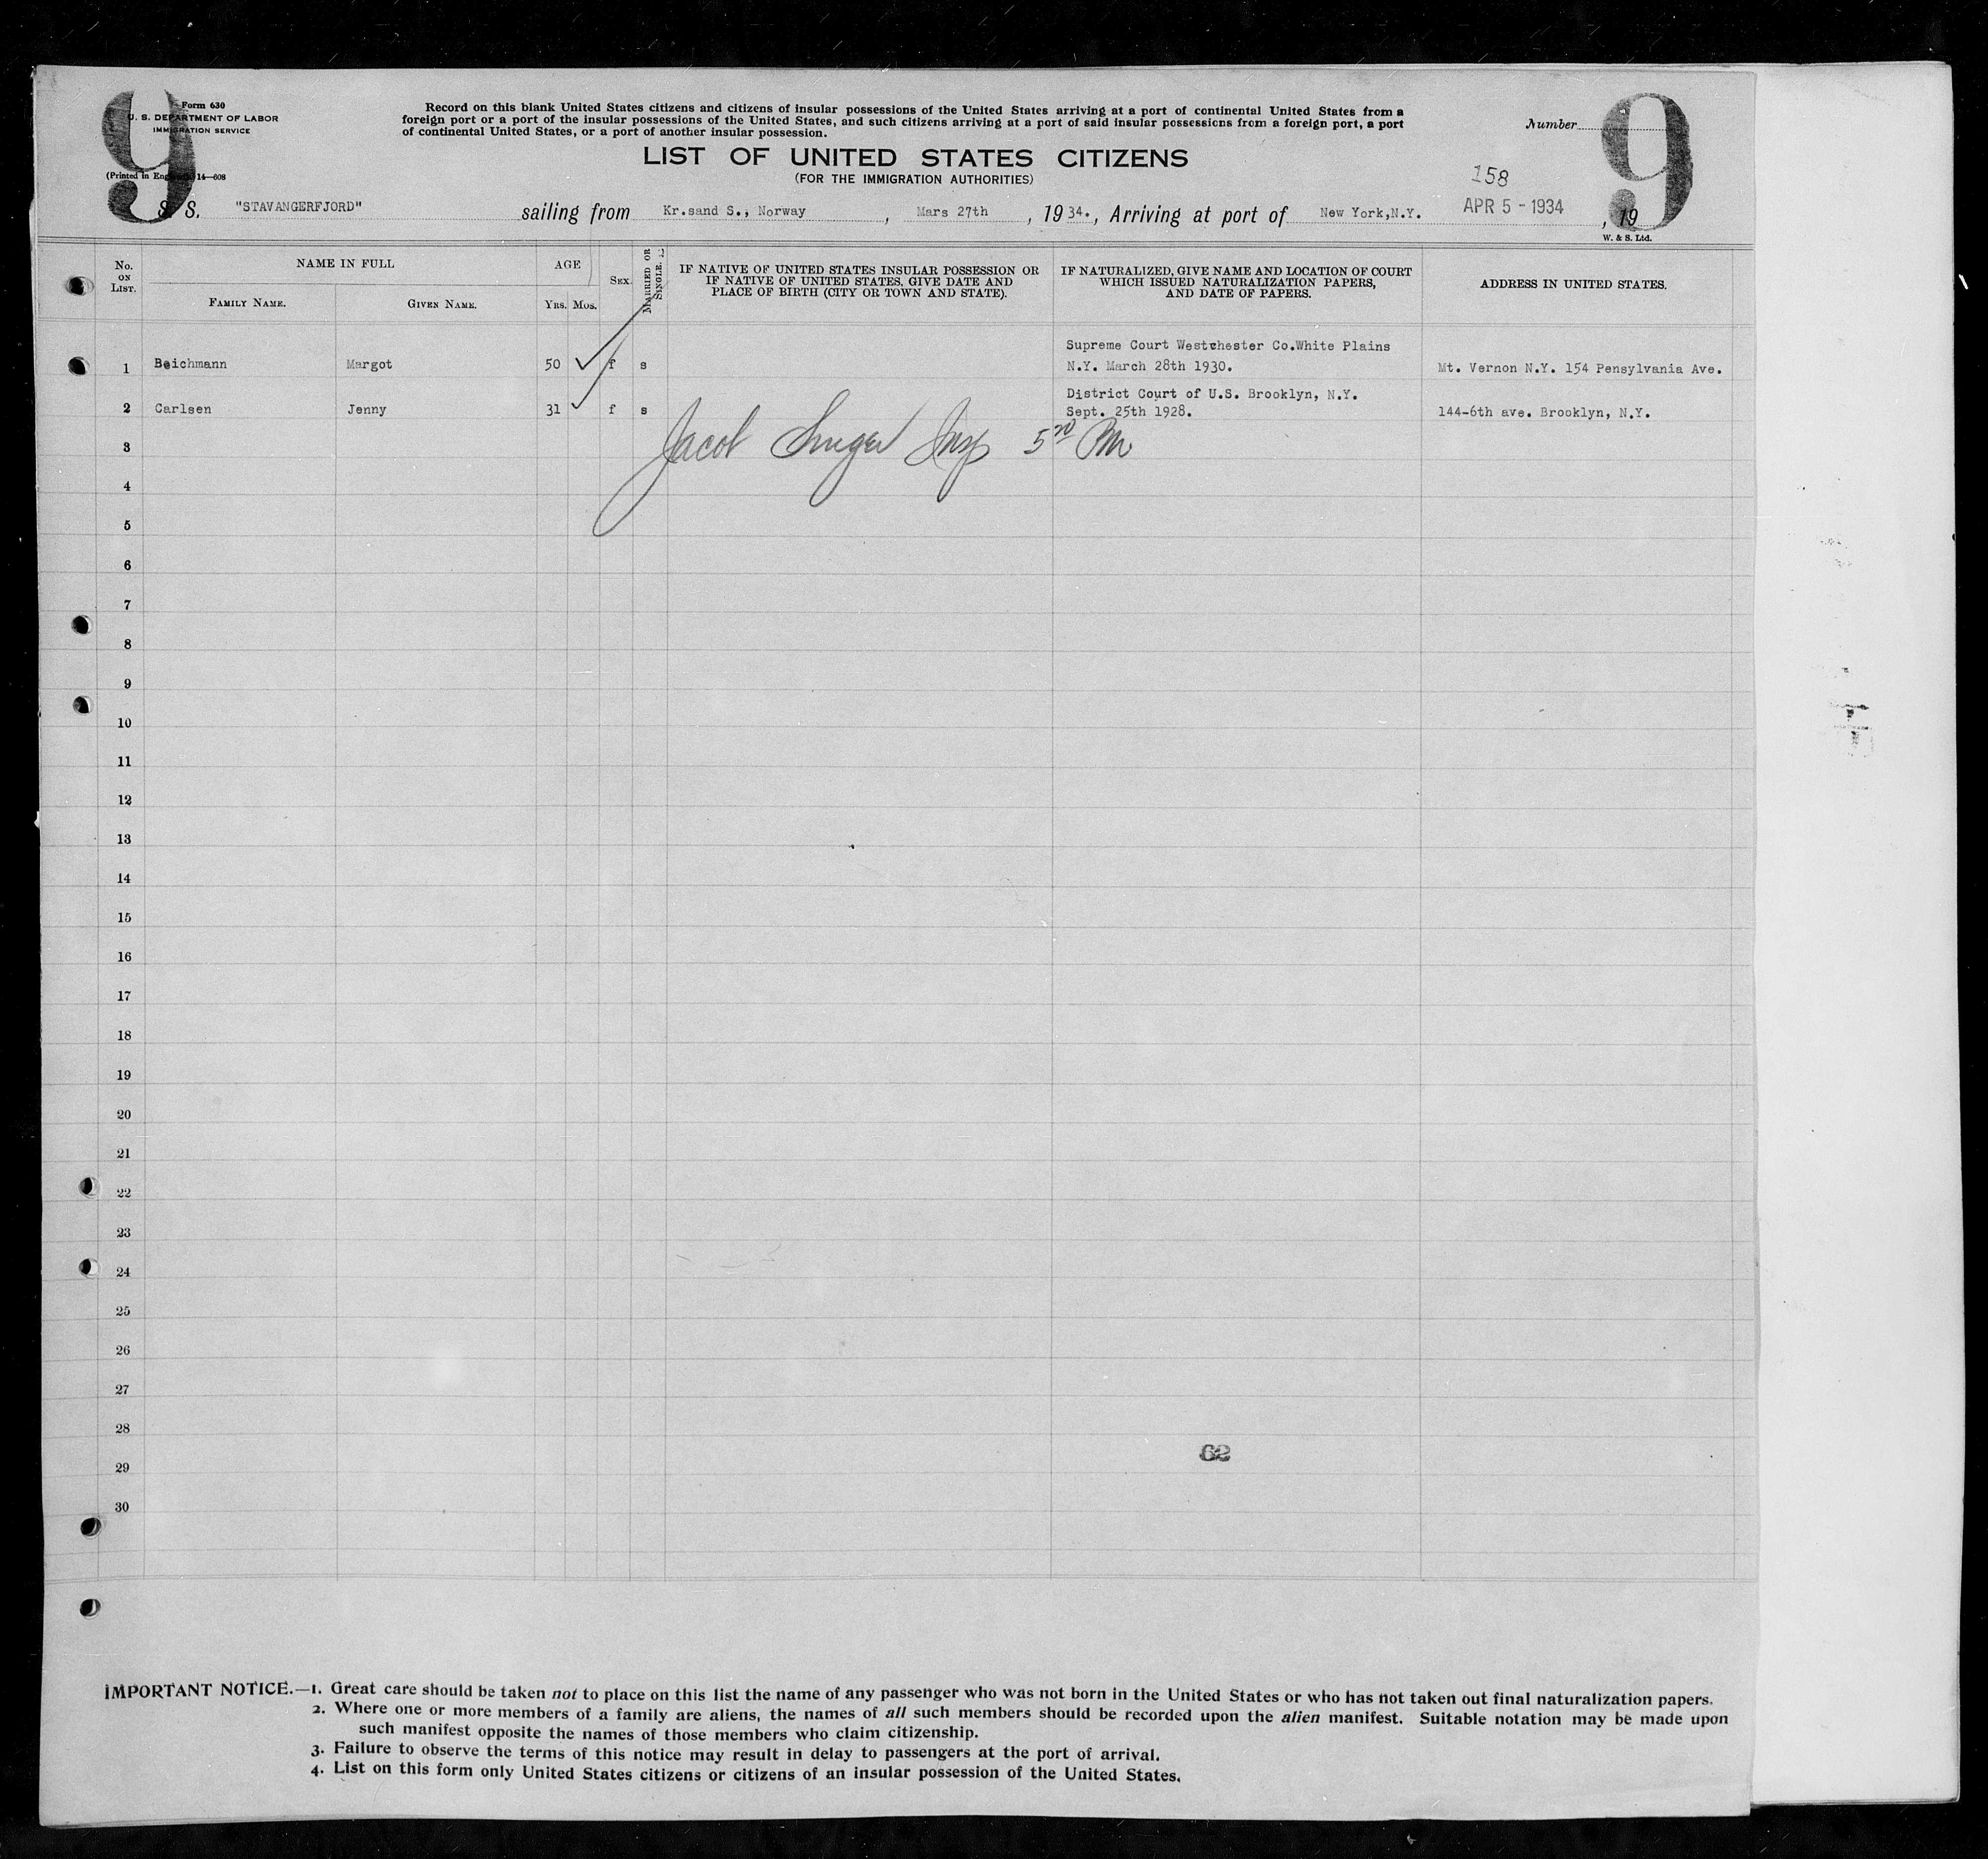 9
Form 630
U. S. DEPARTMENT OF LABOR
IMMIGRATION SERVICE
(Printed in England) 14—608
Record on this blank United States citizens and citizens of insular possessions of the United States arriving at a port of continental United States from a
foreign port or a port of the insular possessions of the United States, and such citizens arriving at a port of said insular possessions from a foreign port, a port
of continental United States, or a port of another insular possession.
LIST OF UNITED STATES CITIZENS
(FOR THE IMMIGRATION AUTHORITIES)
Number
9
158
S. S. "STAVANGERFJORD" sailing from Kr.sand S., Norway, Mars 27th, 1934., Arriving at port of New York,N.Y. APR 5 - 1934, 19
W. & S. Ltd.
No. ON LIST.
NAME IN FULL
FAMILY NAME.
GIVEN NAME.
AGE
YRS. MOS.
SEX
MARRIED OR SINGLE.
IF NATIVE OF UNITED STATES INSULAR POSSESSION OR
IF NATIVE OF UNITED STATES, GIVE DATE AND
PLACE OF BIRTH (CITY OR TOWN AND STATE).
IF NATURALIZED, GIVE NAME AND LOCATION OF COURT
WHICH ISSUED NATURALIZATION PAPERS,
AND DATE OF PAPERS.
ADDRESS IN UNITED STATES.
Supreme Court Westchester Co.White Plains
1 Beichmann Margot 50 f s N.Y. March 28th 1930. Mt. Vernon N.Y. 154 Pensylvania Ave.
District Court of U.S. Brooklyn, N.Y.
2 Carlsen Jenny 31 f s Sept. 25th 1928. 144-6th ave. Brooklyn, N.Y.
3 Jacob Singer Insp
4
5
6
7
8
9
10
11
12
13
14
15
16
17
18
19
20
21
22
23
24
25
26
27
28
62
29
30
IMPORTANT NOTICE.—1. Great care should be taken not to place on this list the name of any passenger who was not born in the United States or who has not taken out final naturalization papers.
2. Where one or more members of a family are aliens, the names of all such members should be recorded upon the alien manifest. Suitable notation may be made upon
such manifest opposite the names of those members who claim citizenship.
3. Failure to observe the terms of this notice may result in delay to passengers at the port of arrival.
4. List on this form only United States citizens or citizens of an insular possession of the United States.